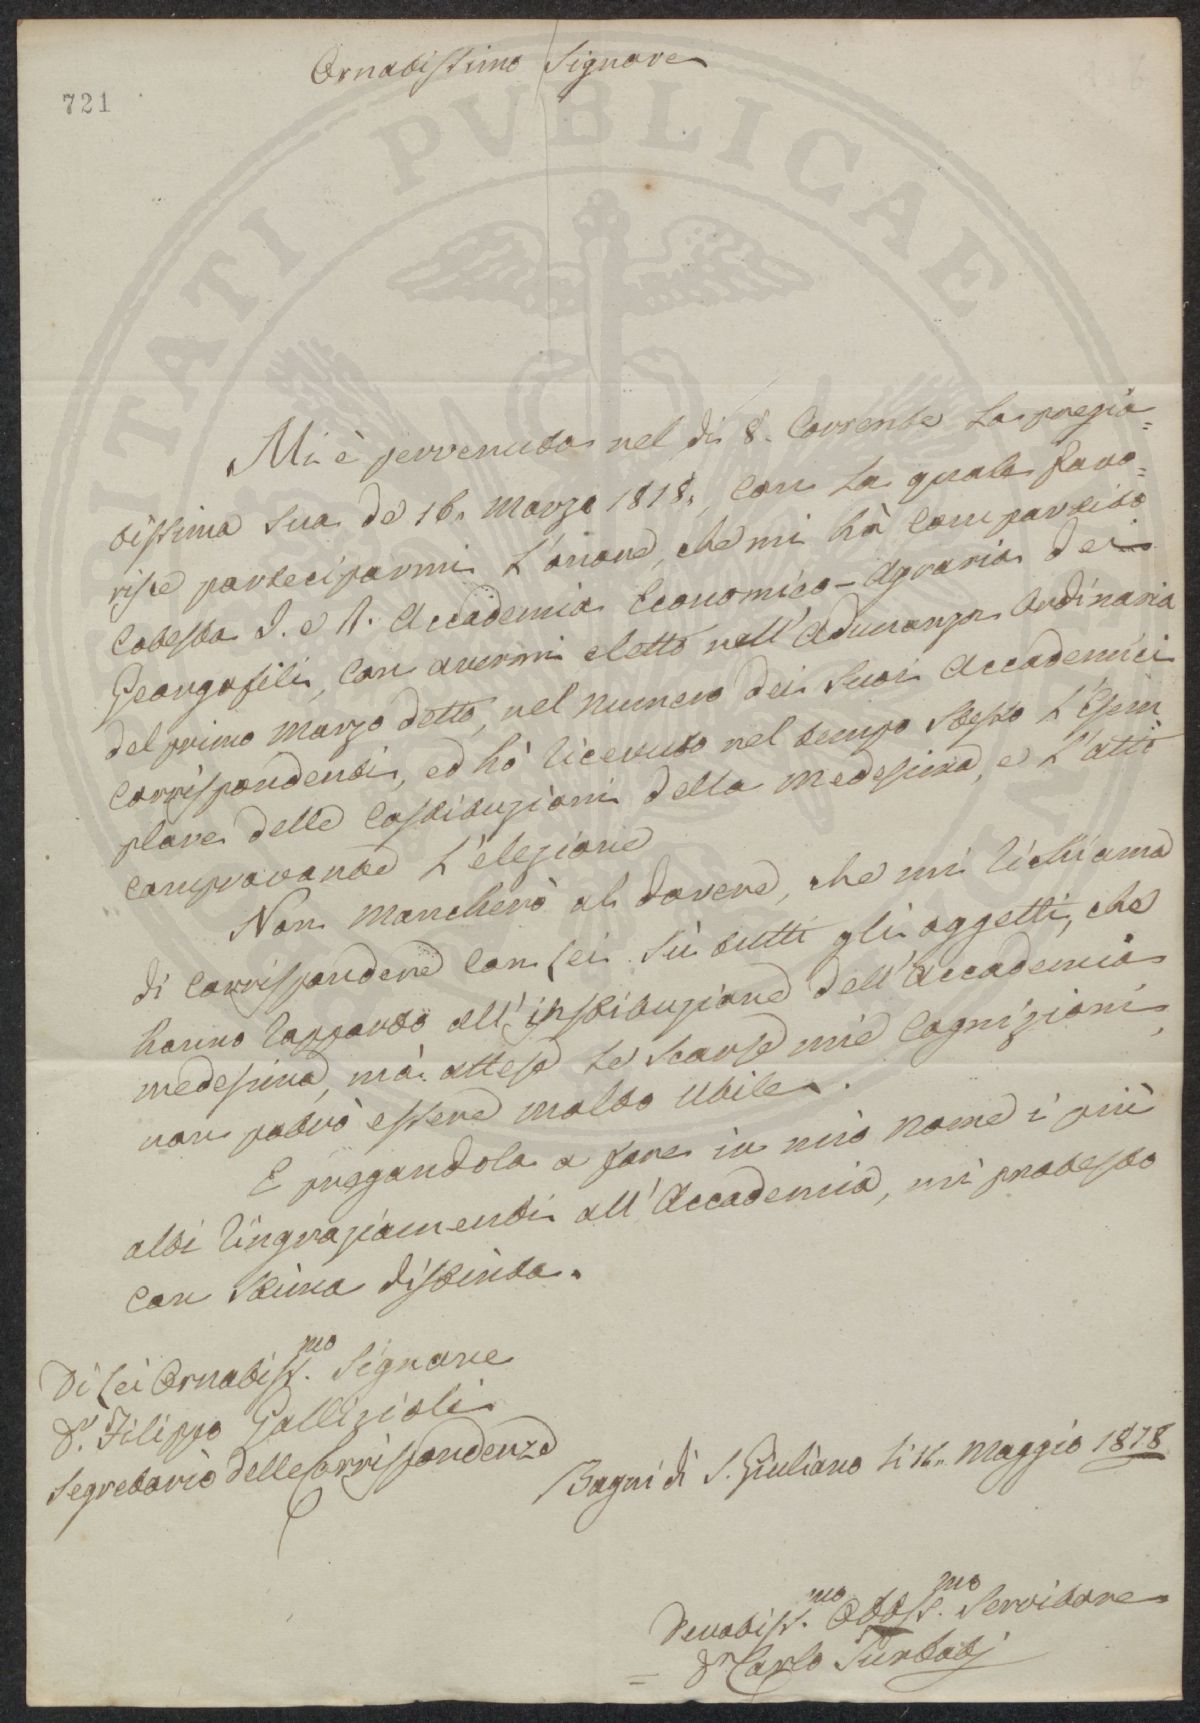 Ornatissimo Signore
721
PUBLICAE
Mi è pervenuta nel dì 8. Corrente La pregia=
tissima sua de 16. Marzo 1818., con La quale favo=
risce parteciparmi L'onore, che mi hà compartito
Cotesta I. e R. Accademia Economico-Agraria dei
Georgofili, con avermi eletto nell'Adunanza Ordinaria
del primo Marzo detto, nel numero dei Suoi Accademici
Corrispondenti, ed hò ricevuto nel tempo stesso L'Esem
plare delle Costituzioni della Medesima, e L'atto
comprovante L'elezione
Non mancherò al dovere, che mi richiama
di corrispondere con Lei sù tutti gli oggetti, che
hanno rapporto all'instituzione dell'Accademia
medesima, mà attese Le scarse mie Cognizioni,
non potrò essere molto Utile.
E pregandola a fare in mio nome i più
alti ringraziamenti all'Accademia, mi protesto
con stima distinta.
Di Lei Ornatiss.mo Signore
Dr. Filippo Gallizioli
Segretario delle Corrispondenze
Bagni di S. Giuliano Li 16. Maggio 1818
Devotiss.mo Obbss.mo Servitore
Dr Carlo Turbatj